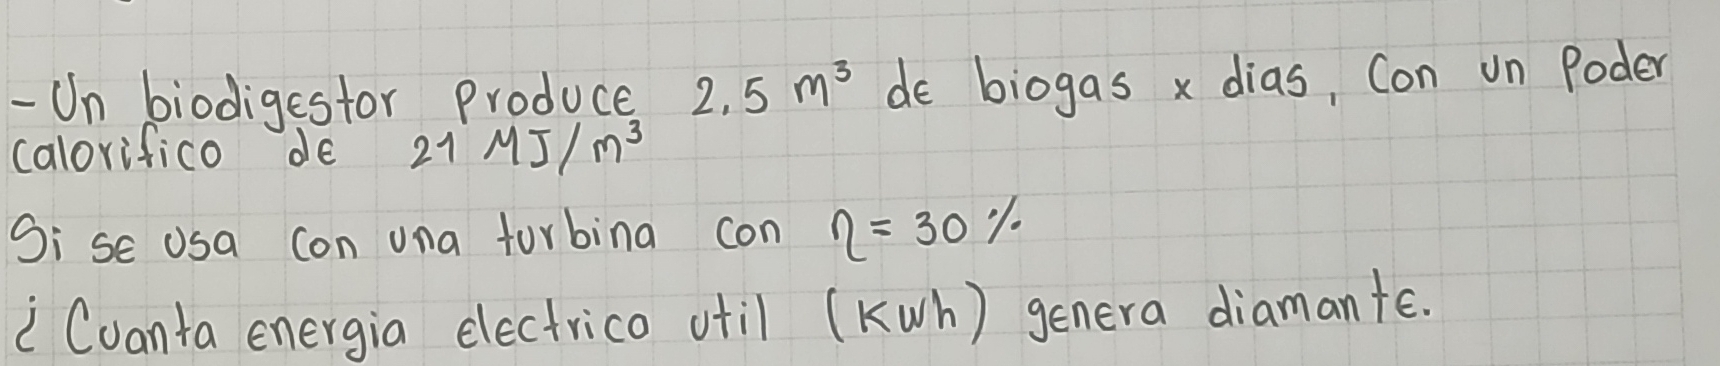 - Un biodigestor produce 2.5 m³ de biogas x dias, Con un Poder
calorifico de 21 MJ/m³
Si se usa con una turbina con η = 30 %
¿ Cuanta energia electrica util (Kwh) genera diamante.